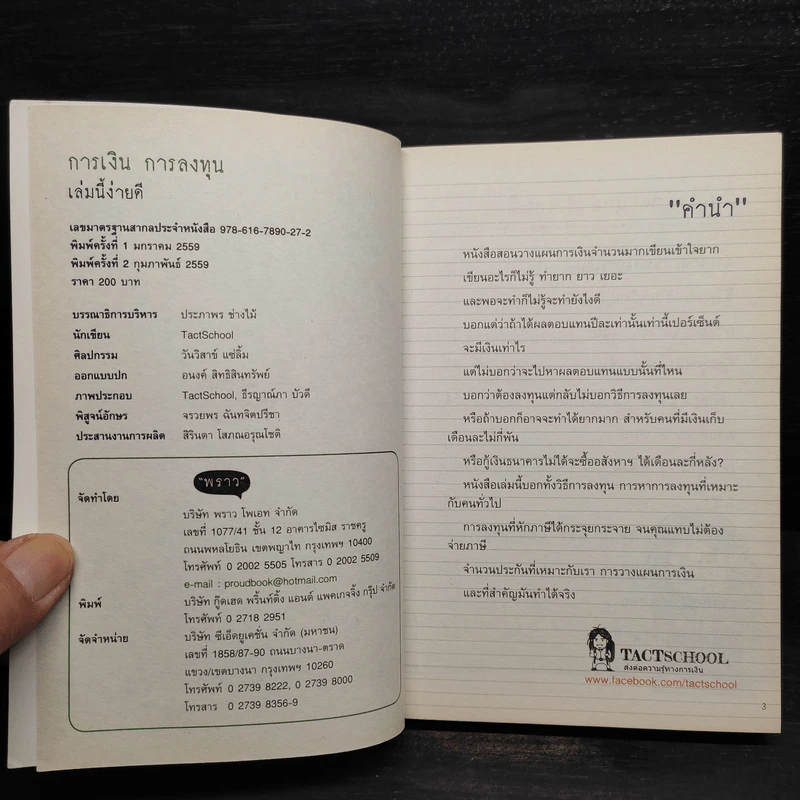 การเงิน การลงทุน
เล่มนี้ง่ายดี
เลขมาตรฐานสากลประจำหนังสือ 978-616-7890-27-2
พิมพ์ครั้งที่ 1 มกราคม 2559
พิมพ์ครั้งที่ 2 กุมภาพันธ์ 2559
ราคา 200 บาท
บรรณาธิการบริหาร ประภาพร ช่างไม้
นักเขียน TactSchool
ศิลปกรรม วันวิสาข์ แซ่ลิ้ม
ออกแบบปก อนงค์ สิทธิสินทรัพย์
ภาพประกอบ TactSchool, ธีรญาณ์ภา บัวดี
พิสูจน์อักษร จรวยพร ฉันทจิตปรีชา
ประสานงานการผลิต สิรินดา โสภณอรุณโชติ
"พราว"
จัดทำโดย
บริษัท พราว โพเอท จำกัด
เลขที่ 1077/41 ชั้น 12 อาคารไซมิส ราชครู
ถนนพหลโยธิน เขตพญาไท กรุงเทพฯ 10400
โทรศัพท์ 0 2002 5505 โทรสาร 0 2002 5509
e-mail : proudbook@hotmail.com
พิมพ์ บริษัท กู๊ดเฮด พริ้นท์ติ้ง แอนด์ แพคเกจจิ้ง กรุ๊ป จำกัด
โทรศัพท์ 0 2718 2951
จัดจำหน่าย บริษัท ซีเอ็ดยูเคชั่น จำกัด (มหาชน)
เลขที่ 1858/87-90 ถนนบางนา-ตราด
แขวง/เขตบางนา กรุงเทพฯ 10260
โทรศัพท์ 0 2739 8222, 0 2739 8000
โทรสาร 0 2739 8356-9
"คำนำ"
หนังสือสอนวางแผนการเงินจำนวนมากเขียนเข้าใจยาก
เขียนอะไรก็ไม่รู้ ทำยาก ยาว เยอะ
และพอจะทำก็ไม่รู้จะทำยังไงดี
บอกแต่ว่าถ้าได้ผลตอบแทนปีละเท่านั้นเท่านี้เปอร์เซ็นต์
จะมีเงินเท่าไร
แต่ไม่บอกว่าจะไปหาผลตอบแทนแบบนั้นที่ไหน
บอกว่าต้องลงทุนแต่กลับไม่บอกวิธีการลงทุนเลย
หรือถ้าบอกก็อาจจะทำได้ยากมาก สำหรับคนที่มีเงินเก็บ
เดือนละไม่กี่พัน
หรือกู้เงินธนาคารไม่ได้จะซื้ออสังหาฯ ได้เดือนละกี่หลัง?
หนังสือเล่มนี้บอกทั้งวิธีการลงทุน การหาการลงทุนที่เหมาะ
กับคนทั่วไป
การลงทุนที่หักภาษีได้กระจุยกระจาย จนคุณแทบไม่ต้อง
จ่ายภาษี
จำนวนประกันที่เหมาะกับเรา การวางแผนการเงิน
และที่สำคัญมันทำได้จริง
TACTSCHOOL
ส่งต่อความรู้ทางการเงิน
www.facebook.com/tactschool
3